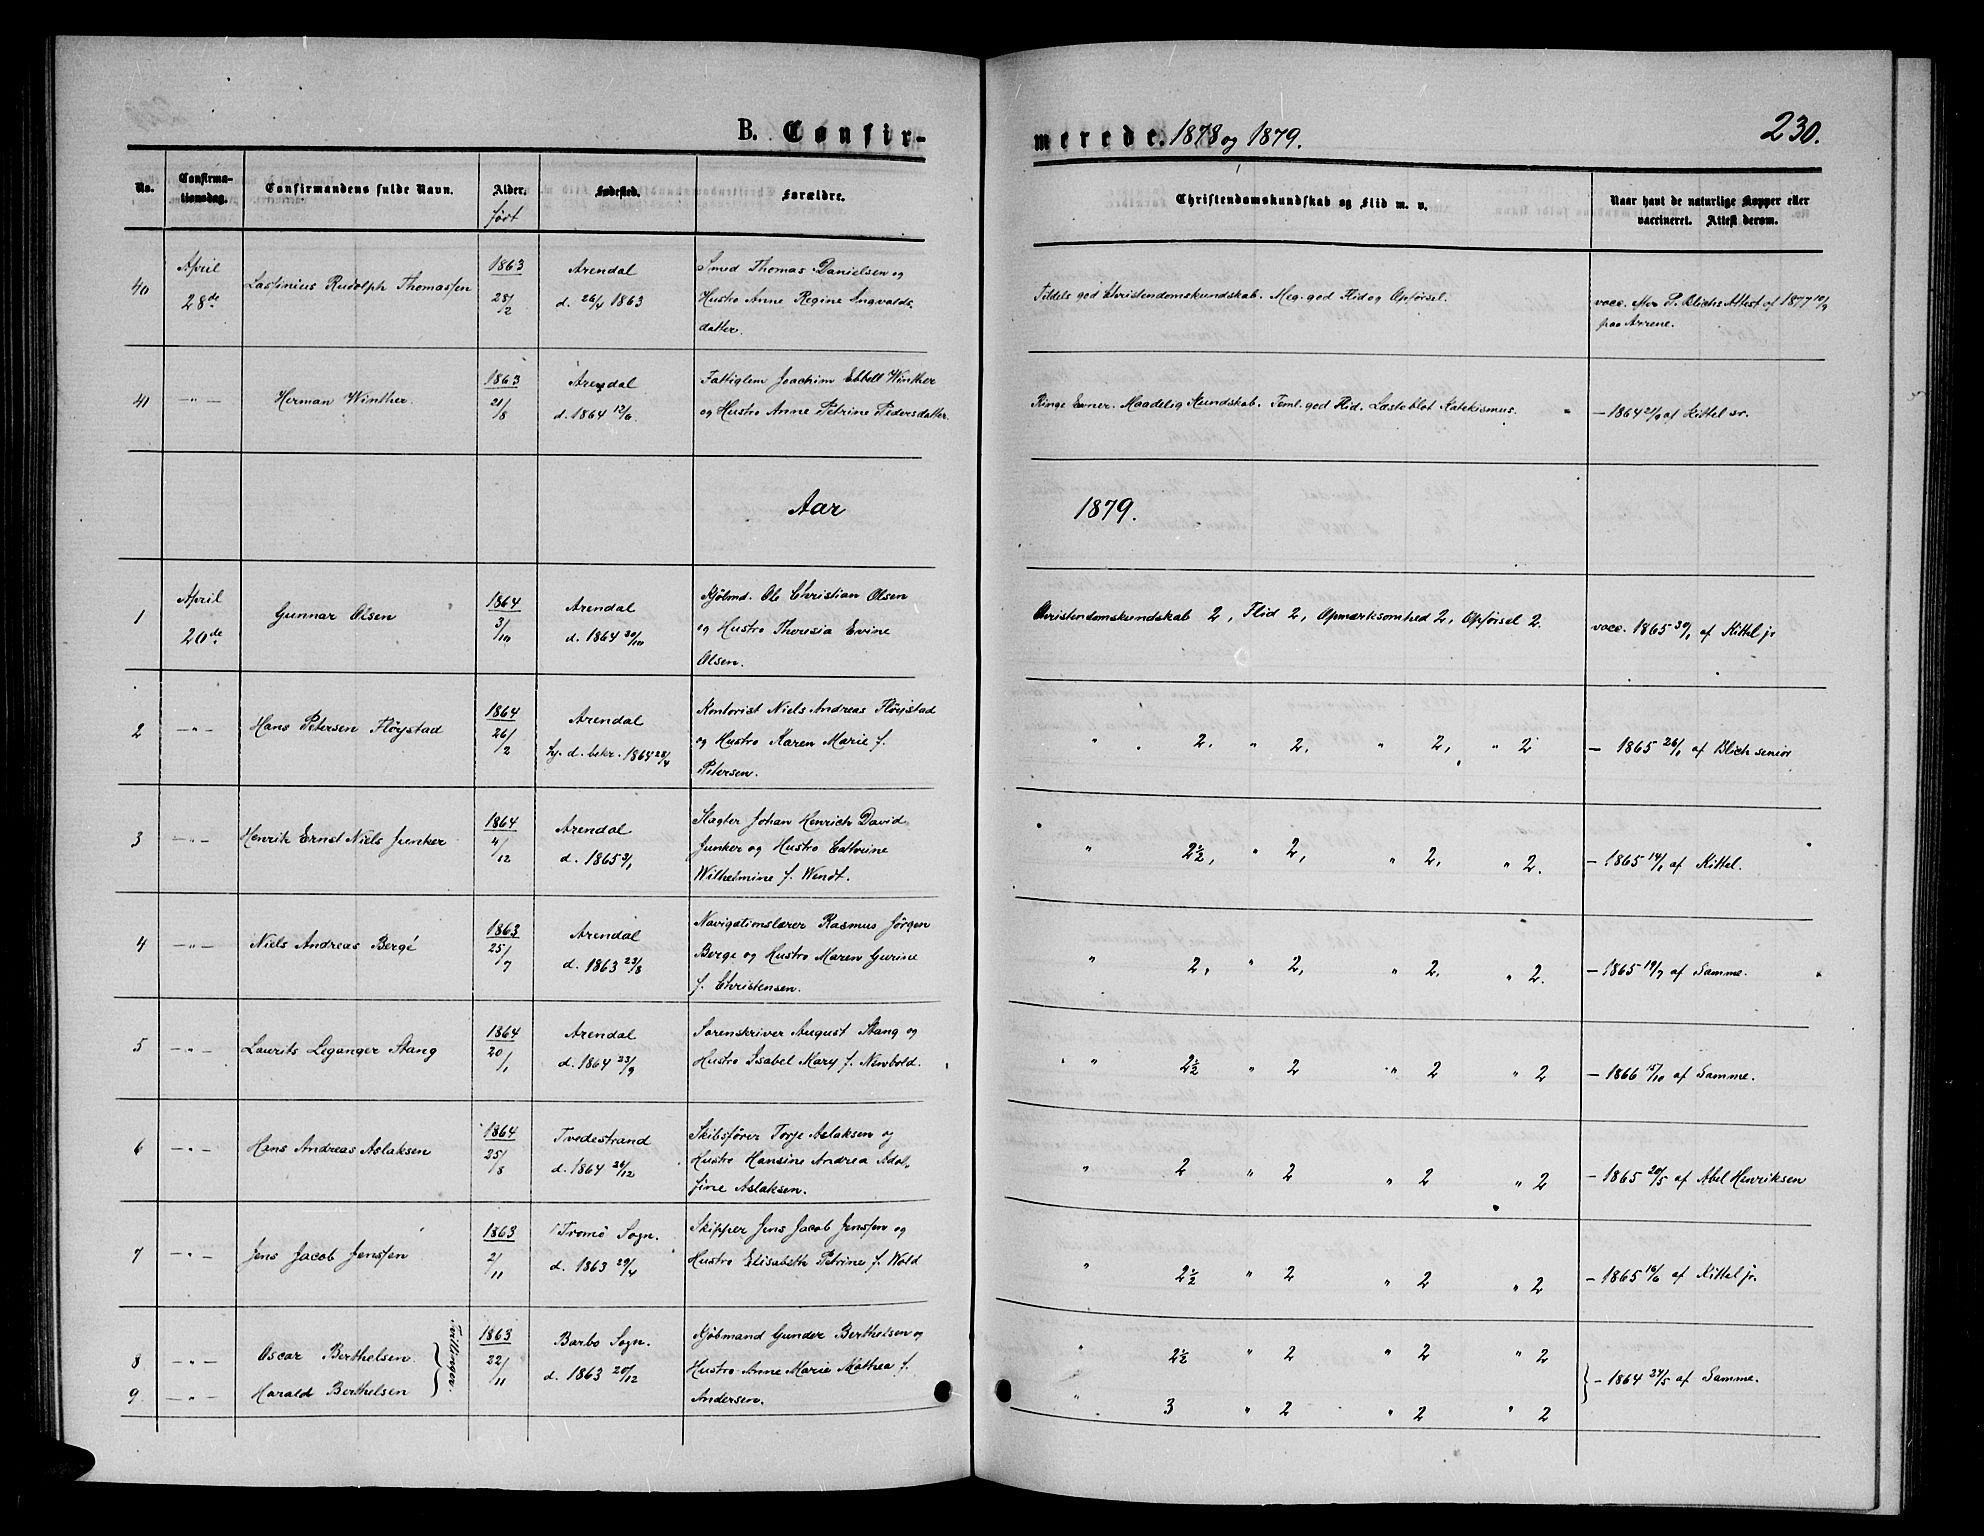 B. Confir-
merede. 1878 og 1879.
230.
No.
Confirma-
tionsdag.
Confirmandens fulde Navn.
Alder.
født
Fødested.
Forældre.
Christendomskundskab og Flid m. v.
Naar havt de naturlige Kopper eller
vaccineret. Attest derom.
40 April 28de Lastinius Rudolph Thomassen 1863 28/2 Arendal d. 26/4 1863
Smed Thomas Danielsen og
Hustro Anne Regine Ingvalds
datter.
Tildels god Christendomskundskab. Meg. god Flid og Opførsel.
vacc. Blichs Attest af 1877 10/9
paa Arrene.
41 —"— Herman Winther. 1863 21/8 Arendal d. 1864 12/6.
Fattiglem Joachim Ebbell Winther
og Hustro Anne Petrine Pedersdatter.
Ringe Evner. Maadelig Kundskab. Teml. god Flid. Læste blot Katekismus.
— 1864 21/9 af Kittel sr.
Aar 1879.
1 April 20de Gunnar Olsen 1864 3/10 Arendal d. 1864 30/10
Kjøbmd. Ole Christian Olsen
og Hustro Theresia Evine
Olsen.
Christendomskundskab 2, Flid 2, Opmærksomhed 2, Opførsel 2.
vacc. 1865 30/1 af Kittel jr
2 —"— Hans Petersen Fløystad 1864 26/2 Arendal hj. d. bekr. 1864 28/4
Kontorist Niels Andreas Fløystad
og Hustro Karen Marie f.
Petersen.
" 2, " 2, " 2, " 2
— 1865 26/1 af Blich senior
3 —"— Henrik Ernst Niels Junker 1864 4/12 Arendal d. 1865 3/1
Slagter Johan Henrich David
Junker og Hustro Cathrine
Wilhelmine f. Wendt.
" 2½, " 2, " 2, " 2.
— 1865 14/1 af Kittel.
4 —"— Niels Andreas Bergé 1863 25/7 Arendal d. 1863 23/8
Navigationslærer Rasmus Jørgen
Berge og Hustro Maren Gurine
f. Christensen.
" 2, " 2, " 2, " 2.
— 1865 19/7 af Samme.
5 —"— Laurits Leganger Stang 1864 20/1 Arendal d. 1864 23/9
Sorenskriver August Stang og
Hustro Isabel Mary f. Newbold.
" 2½ " 2 " 2 " 2
— 1866 15/10 af Samme.
6 —"— Hans Andreas Aslaksen 1864 25/8 Tvedestrand d. 1864 26/12
Skibsfører Torje Aslaksen og
Hustro Hansine Andrea Adol-
fine Aslaksen.
" 2 " 2 " 2 " 2
— 1865 20/5 af Abel Henriksen
7 —"— Jens Jacob Jenssen 1863 2/11 Tromø Sogn. d. 1863 29/4
Skipper Jens Jacob Jenssen og
Hustro Elisabeth Petrine f. Wold
" 2½ " 2 " 2 " 2
— 1865 16/6 af Kittel jr.
8 —"— Oscar Berthelsen
9 —"— Harald Berthelsen
Tvillinger.
1863 22/11 Barbo Sogn. d. 1863 20/12
Kjøbmand Gunder Berthelsen og
Hustro Anne Marie Mathea f.
Andersen.
" 2½ " 2 " 2 " 2
" 3 " 2 " 2 " 2
— 1864 24/5 af Samme.